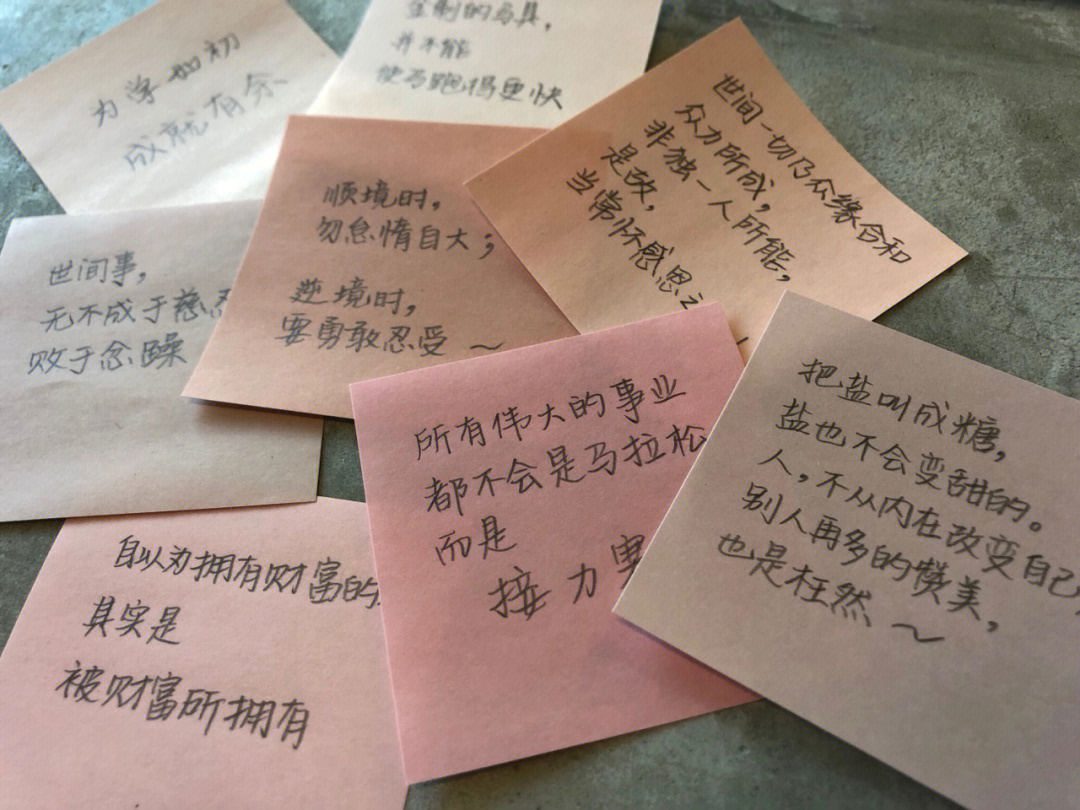 为学如初
成就有余
金制的马具，
并不能
使马跑得更快
世间一切乃众缘合和
众力所成，
非独一人所能，
是故，
当常怀感恩之
顺境时，
勿怠惰自大；
逆境时，
要勇敢忍受～
世间事，
无不成于慈忍
败于念躁
所有伟大的事业
都不会是马拉松
而是
接力
把盐叫成糖，
盐也不会变甜的。
人，不从内在改变自己，
别人再多的赞美，
也是枉然～
自以为拥有财富的
其实是
被财富所拥有